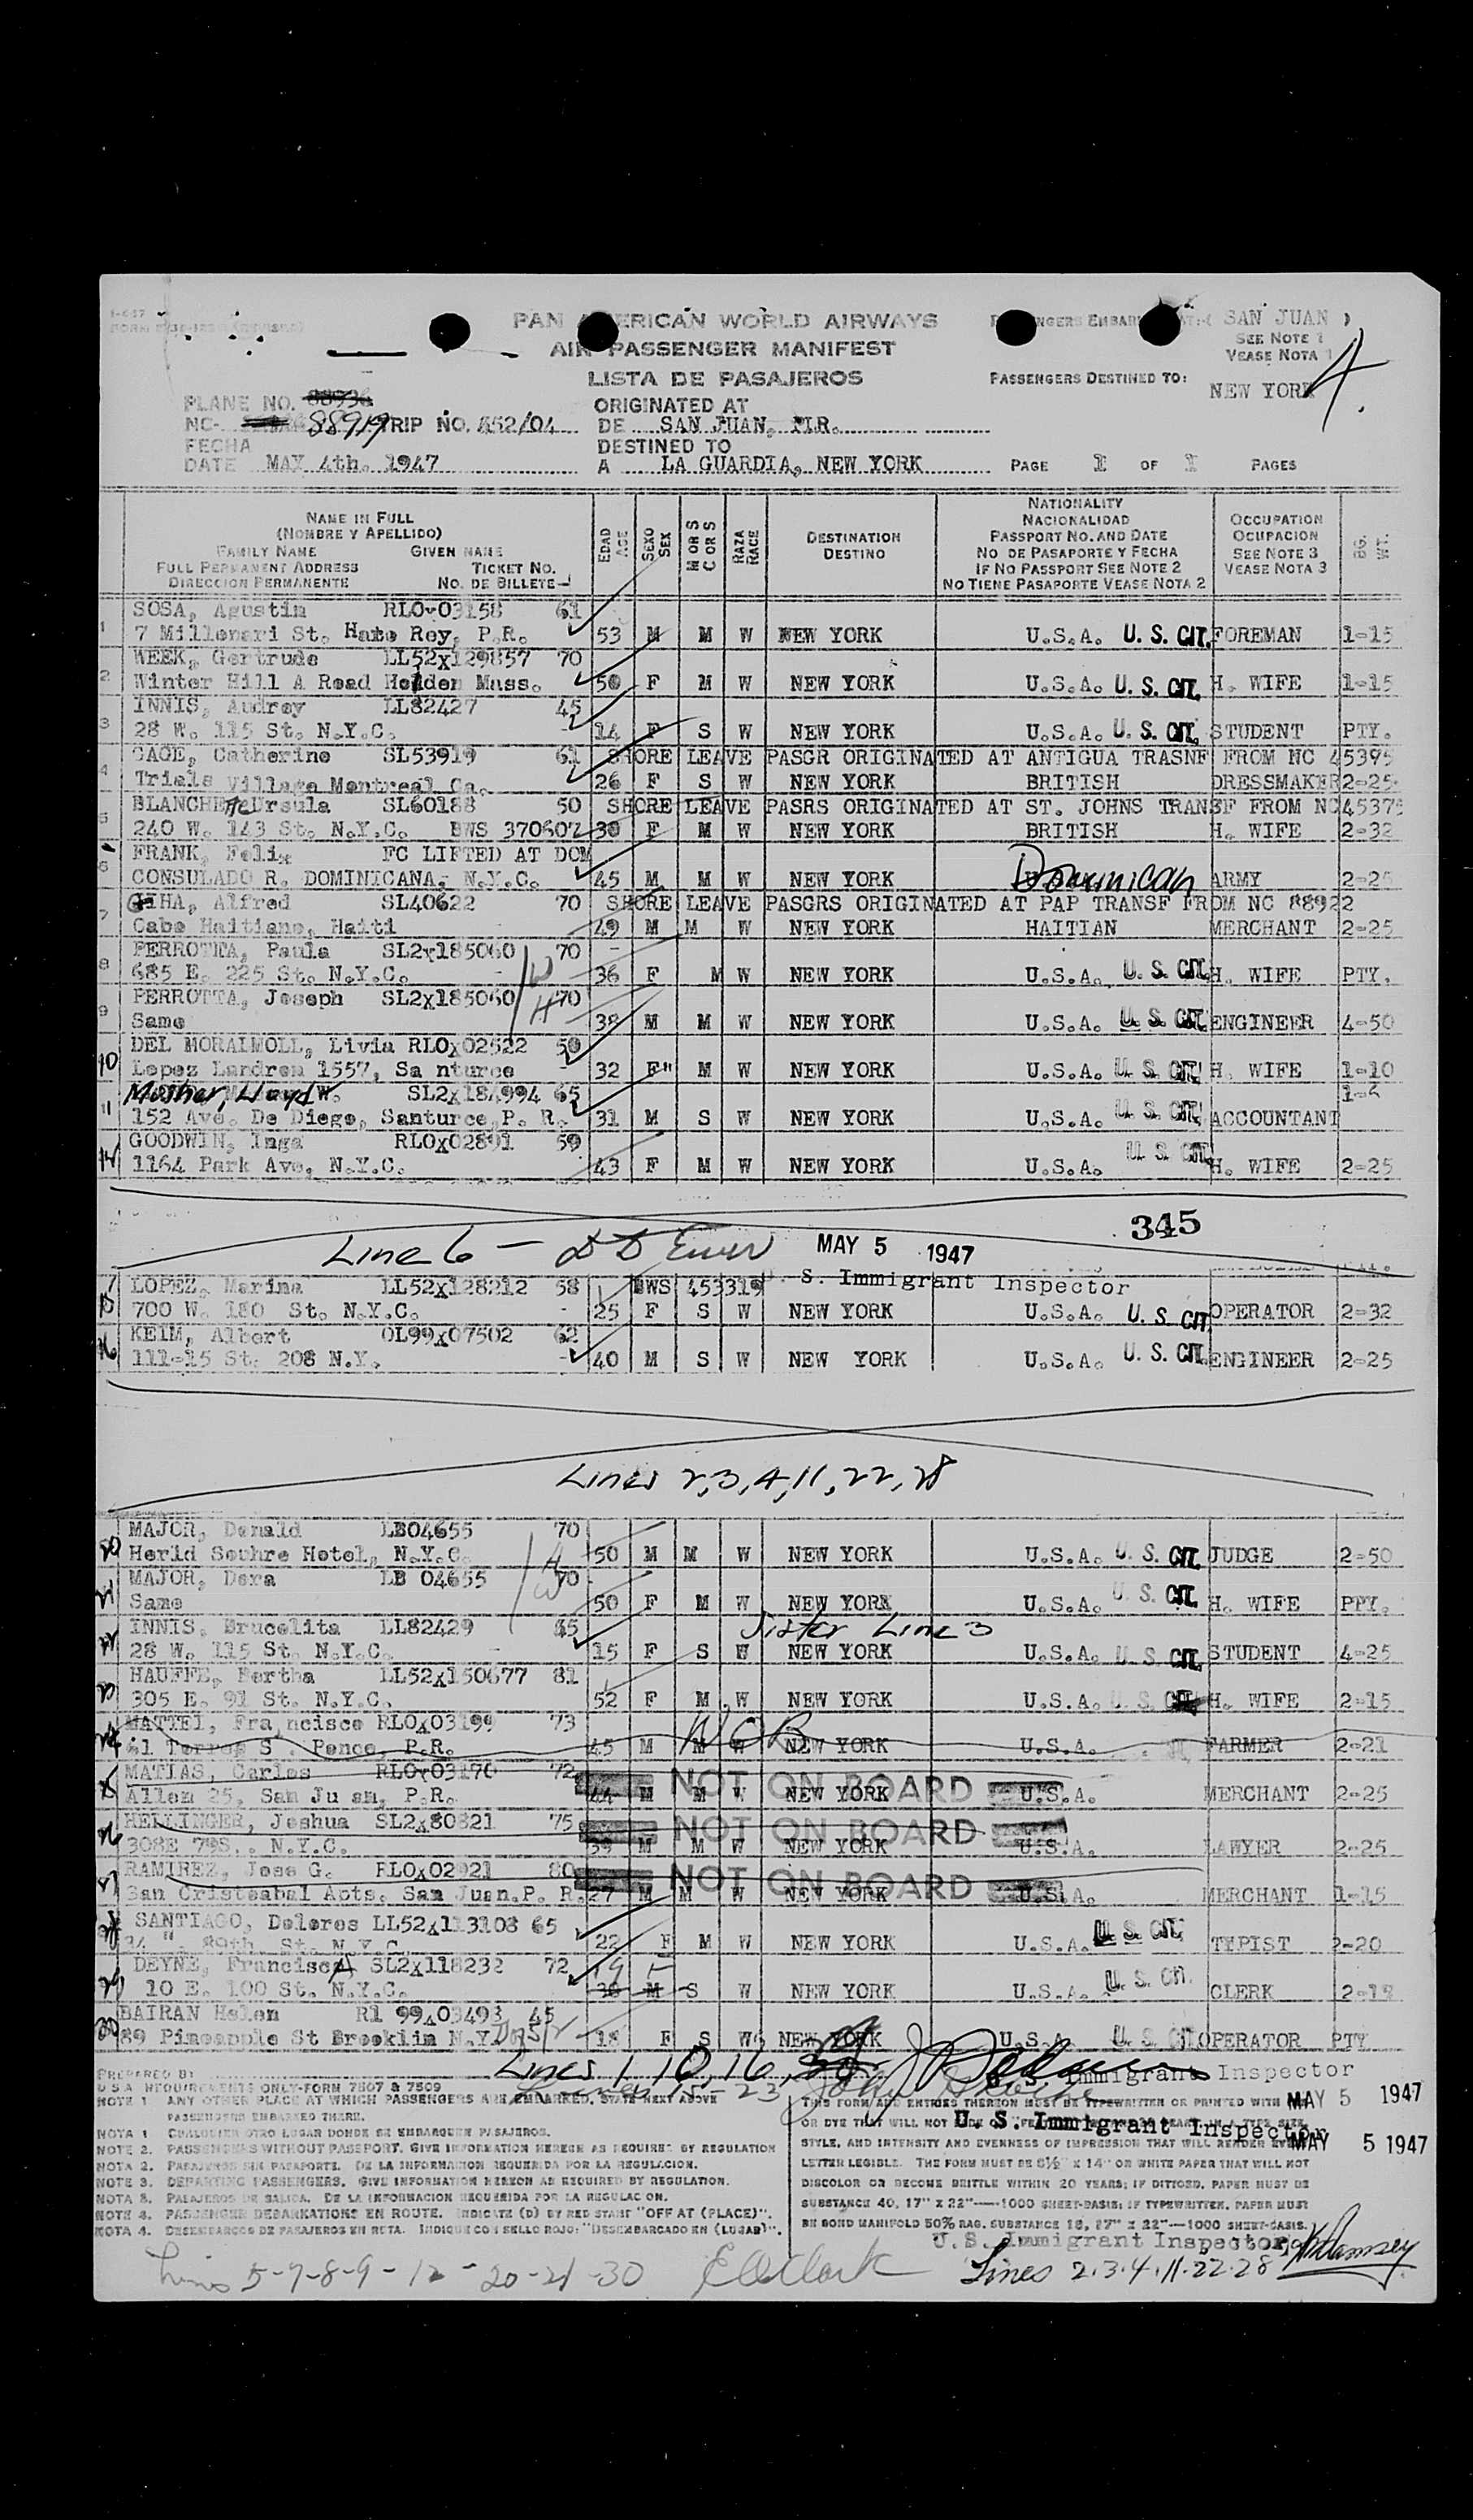 PAN AMERICAN WORLD AIRWAYS
SAN JUAN )
AIR PASSENGER MANIFEST
SEE NOTE 1
VEASE NOTA 1
LISTA DE PASAJEROS
PASSENGERS DESTINED TO:
NEW YORK
4.
PLANE NO. 88936
ORIGINATED AT
NC- 88919 TRIP NO. 452/04
DE SAN JUAN, P.R.
FECHA
DESTINED TO
DATE MAY 4th. 1947
A LA GUARDIA, NEW YORK
PAGE 1 OF 1 PAGES
NAME IN FULL
(NOMBRE Y APELLIDO)
FAMILY NAME GIVEN NAME
FULL PERMANENT ADDRESS TICKET NO.
DIRECCION PERMANENTE NO. DE BILLETE
EDAD AGE
SEXO SEX
M OR S C OR S
RAZA RACE
DESTINATION
DESTINO
NATIONALITY
NACIONALIDAD
PASSPORT NO. AND DATE
NO DE PASAPORTE Y FECHA
IF NO PASSPORT SEE NOTE 2
NO TIENE PASAPORTE VEASE NOTA 2
OCCUPATION
OCUPACION
SEE NOTE 3
VEASE NOTA 3
BG. WT.
SOSA, Agustin RLOx03158 61
1 7 Millonari St. Hato Rey, P.R. 53 M M W NEW YORK U.S.A. U. S. CIT. FOREMAN 1-15
WEEK, Gertrude LL52x129857 70
2 Winter Hill A Road Holden Mass. 50 F M W NEW YORK U.S.A. U. S. CIT. H. WIFE 1-15
INNIS, Audrey LL82427 45
3 28 W. 115 St. N.Y.C. 14 F S W NEW YORK U.S.A. U. S. CIT. STUDENT PTY.
GAGE, Catherine SL53919 61 SHORE LEAVE PASGR ORIGINATED AT ANTIGUA TRASNF FROM NC 45395
4 Trials Village Montreal Ca. 26 F S W NEW YORK BRITISH DRESSMAKER 2-25
BLANCHETTE Ursula SL60188 50 SHORE LEAVE PASRS ORIGINATED AT ST. JOHNS TRANSF FROM NC 45375
5 240 W. 143 St. N.Y.C. BWS 370607 30 F M W NEW YORK BRITISH H. WIFE 2-32
FRANK, Felix FC LIFTED AT DCM
6 CONSULADO R. DOMINICANA, N.Y.C. 45 M M W NEW YORK Dominican ARMY 2-25
GEHA, Alfred SL40622 70 SHORE LEAVE PASGRS ORIGINATED AT PAP TRANSF FROM NC 88922
7 Cabe Haitiano, Haiti 49 M M W NEW YORK HAITIAN MERCHANT 2-25
PERROTTA, Paula SL2x185060 70
8 685 E. 225 St. N.Y.C. W 36 F M W NEW YORK U.S.A. U. S. CIT. H. WIFE PTY.
PERROTTA, Joseph SL2x185060 70
9 Same H 38 M M W NEW YORK U.S.A. U. S. CIT. ENGINEER 4-50
DEL MORALMOLL, Livia RLOx02522 50
10 Lopez Landron 1557, Sa nturce 32 F M W NEW YORK U.S.A. U. S. CIT. H. WIFE 1-10
Mosher, Lloyd W. SL2x184994 65
11 152 Ave. De Diego, Santurce, P. R. 31 M S W NEW YORK U.S.A. U. S. CIT. ACCOUNTANT
GOODWIN, Inga RLOx02891 50
1164 Park Ave, N.Y.C. 43 F M W NEW YORK U.S.A. U. S. CIT. H. WIFE 2-25
345
Line 6 - MAY 5 1947
LOPEZ, Marina LL52x128212 58 BWS 453319 U. S. Immigrant Inspector
700 W. 180 St. N.Y.C. 25 F S W NEW YORK U.S.A. U. S. CIT. OPERATOR 2-32
KEIM, Albert OL99x07502 62
16 111-15 St. 208 N.Y. 40 M S W NEW YORK U.S.A. U. S. CIT. ENGINEER 2-25
Lines 2,3,4,11,22,28
MAJOR, Donald LB04655 70
20 Herld Souhre Hotel, N.Y.C. H 50 M M W NEW YORK U.S.A. U. S. CIT. JUDGE 2-50
MAJOR, Dora LB 04655 70
21 Same W 50 F M W NEW YORK U.S.A. U. S. CIT. H. WIFE PTY.
INNIS, Brucelita LL82429 45 Sister Line 3
22 28 W. 115 St. N.Y.C. 15 F S W NEW YORK U.S.A. U. S. CIT. STUDENT 4-25
HAUFFE, Bertha LL52x150677 81
23 305 E. 91 St. N.Y.C. 52 F M W NEW YORK U.S.A. U. S. CIT. H. WIFE 2-15
MATTEI, Francisco RLOx03199 73 N O B
24 61 Torres S . Ponce, P.R. 45 M M W NEW YORK U.S.A. FARMER 2-21
MATIAS, Carlos RLOx03170 72 NOT ON BOARD
Allen 25, San Ju an, P.R. 44 M M W NEW YORK U.S.A. MERCHANT 2-25
HELLINGER, Joshua SL2x80821 75 NOT ON BOARD
26 308E 79S.. N.Y.C. 39 M M W NEW YORK U.S.A. LAWYER 2-25
RAMIREZ, Jose G. RLOx02921 80 NOT ON BOARD
27 San Cristoabal Apts. San Juan.P. R. 27 M M W NEW YORK U.S.A. MERCHANT 1-15
SANTIAGO, Dolores LL52x113108 65
28 34 W. 89th. St. N.Y.C. 22 F M W NEW YORK U.S.A. U. S. CIT. TYPIST 2-20
DEYNE, Francisca A SL2x118232 72 19 F
29 10 E. 100 St. N.Y.C. 30 M S W NEW YORK U.S.A. U. S. CIT. CLERK 2-19
BAIRAN Helen R1 99x03493 45
30 89 Pineapple St Brooklin N.Y. 18 F S W NEW YORK U.S.A. U. S. CIT. OPERATOR PTY
Lines 1, 10, 16,
U. S. Immigrant Inspector
PREPARED BY
MAY 5 1947
U S A REQUIREMENTS ONLY-FORM 7507 & 7509
Lines 15-23
U. S. Immigrant Inspector
MAY 5 1947
NOTE 1 ANY OTHER PLACE AT WHICH PASSENGERS ARE EMBARKED. STATE NEXT ABOVE
PASSENGERS EMBARKED THERE.
NOTA 1 CUALQUIER OTRO LUGAR DONDE SE EMBARQUEN PASAJEROS.
NOTE 2. PASSENGERS WITHOUT PASSPORT. GIVE INFORMATION HEREON AS REQUIRED BY REGULATION
NOTA 2. PASAJEROS SIN PASAPORTE. DE LA INFORMACION REQUERIDA POR LA REGULACION.
NOTE 3. DEPARTING PASSENGERS. GIVE INFORMATION HEREON AS REQUIRED BY REGULATION.
NOTA 3. PASAJEROS DE SALIDA. DE LA INFORMACION REQUERIDA POR LA REGULACION.
NOTE 4. PASSENGER DEBARKATIONS EN ROUTE. INDICATE (D) BY RED STAMP "OFF AT (PLACE)".
NOTA 4. DESEMBARCOS DE PASAJEROS EN RUTA. INDIQUE CON SELLO ROJO: "DESEMBARCADO EN (LUGAR)".
THIS FORM AND ENTRIES THEREON MUST BE TYPEWRITTEN OR PRINTED WITH INK
OR DYE THAT WILL NOT
STYLE, AND INTENSITY AND EVENNESS OF IMPRESSION THAT WILL RENDER EVERY
LETTER LEGIBLE. THE FORM MUST BE 8½ X 14" OR WHITE PAPER THAT WILL NOT
DISCOLOR OR BECOME BRITTLE WITHIN 20 YEARS; IF DITTOED, PAPER MUST BE
SUBSTANCE 40, 17" X 22"-1000 SHEET-BASIS; IF TYPEWRITTEN, PAPER MUST
BE BOND MANIFOLD 50% RAG, SUBSTANCE 18, 17" X 22"-1000 SHEET-BASIS.
U. S. Immigrant Inspector
Lines 5-7-8-9-12-20-21-30 E O Clark
Lines 2.3.4.11.22.28 Ramsey